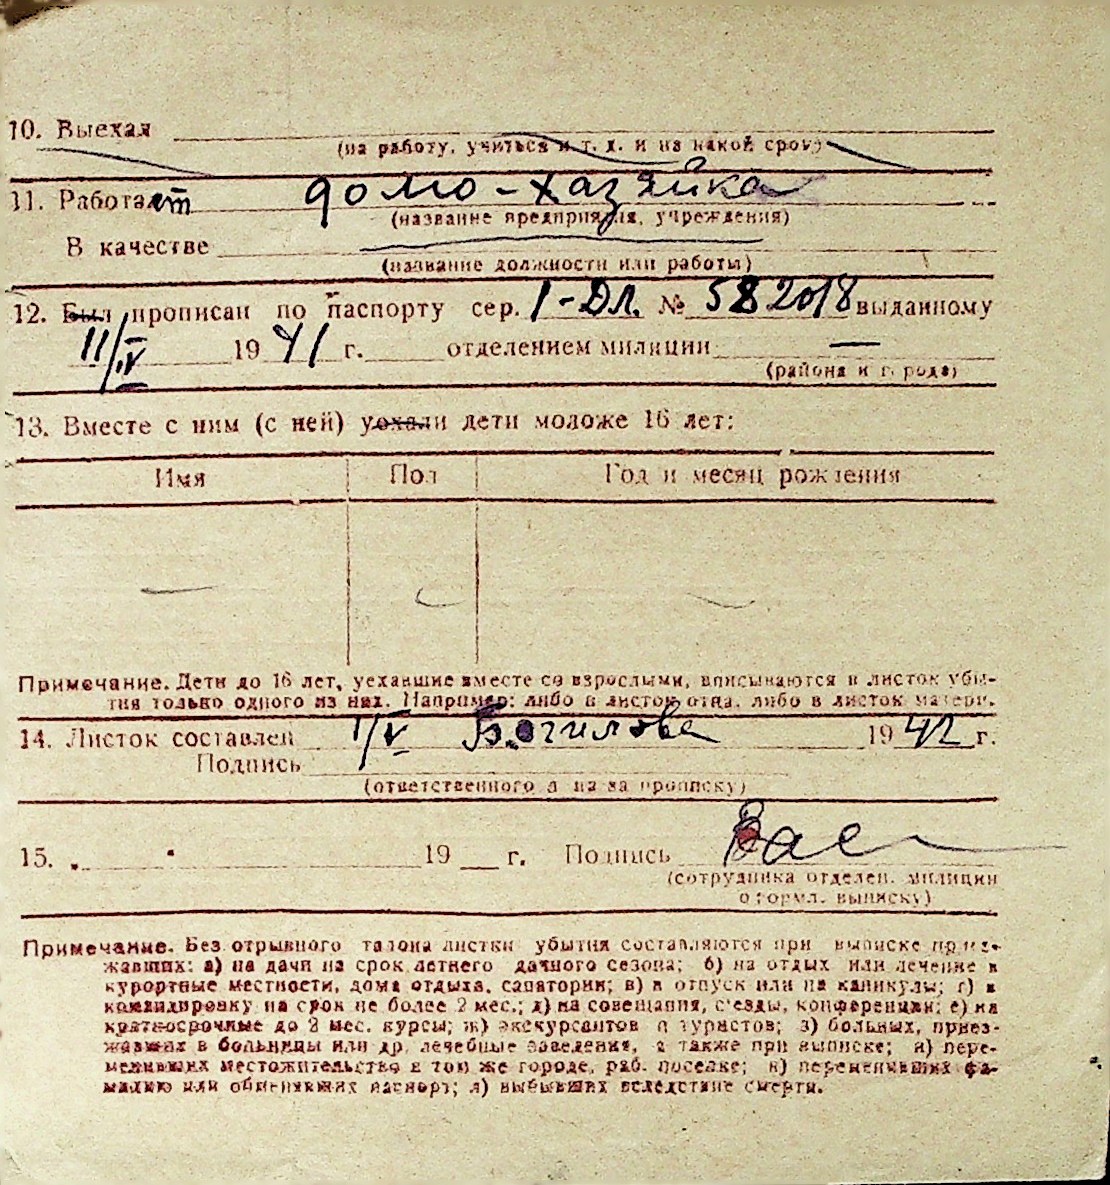 10. Выехал
(на работу, учиться и т. д. и на какой срок)
11. Работает домо-хазяйка
(название предприятия, учреждения)
В качестве
(название должности или работы)
12. Был прописан по паспорту сер. I-ДЛ. № 582018 выданному
11/IV 1941 г. отделением милиции —
(района и города)
13. Вместе с ним (с ней) уехали дети моложе 16 лет:
Имя Пол Год и месяц рождения
Примечание. Дети до 16 лет, уехавшие вместе со взрослыми, вписываются в листок убы-
тия только одного из них. Например: либо в листок отца, либо в листок матери.
14. Листок составлен 1/V 1942 г.
Подпись
(ответственного лица за прописку)
15. 19 г. Подпись
(сотрудника отделен. милиции
оформл. выписку)
Примечание. Без отрывного талона листки убытия составляются при выписке приез-
жавших: а) на дачи на срок летнего дачного сезона; б) на отдых или лечение в
курортные местности, дома отдыха, санатории; в) в отпуск или на каникулы; г) в
командировку на срок не более 2 мес.; д) на совещания, с'езды, конференции; е) на
краткосрочные до 2 мес. курсы; ж) экскурсантов и туристов; з) больных, приез-
жавших в больницы или др. лечебные заведения, а также при выписке; и) пере-
менивших местожительство в том же городе, раб. поселке; к) переменивших фа-
милию или обменявших паспорт; л) выбывших вследствие смерти.